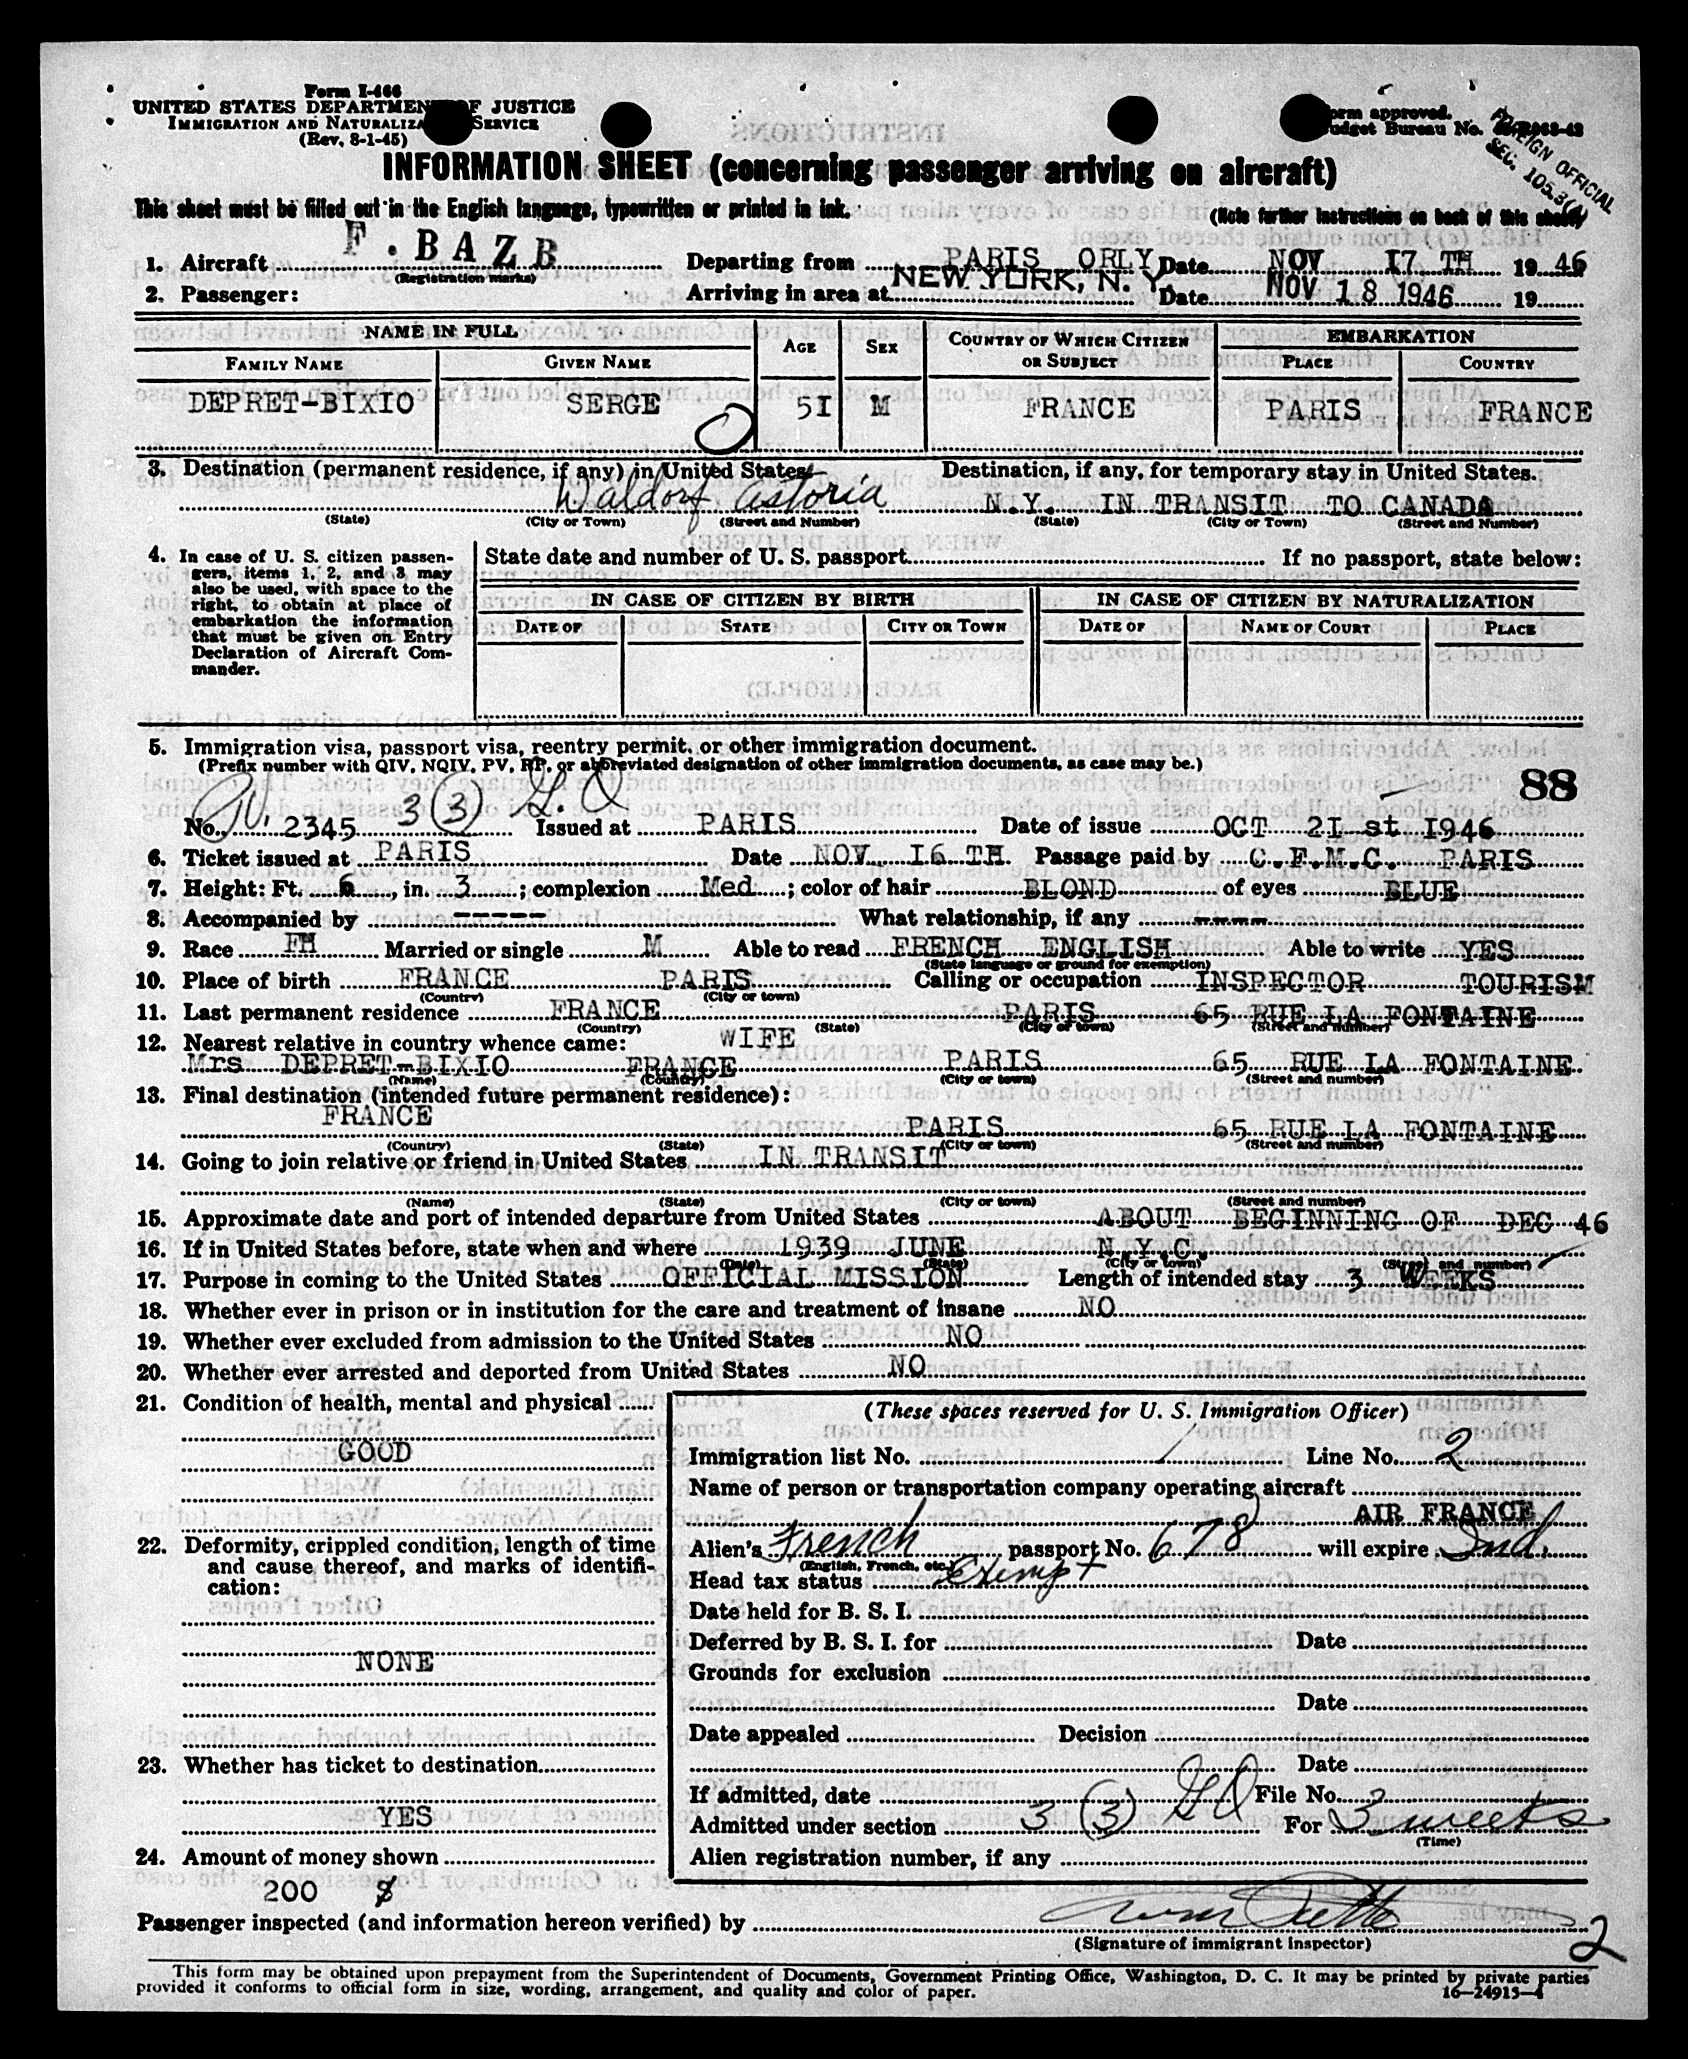 Form I-466
UNITED STATES DEPARTMENT OF JUSTICE
IMMIGRATION AND NATURALIZATION SERVICE
(Rev. 8-1-45)
Form approved.
Budget Bureau No.
FOREIGN OFFICIAL
SEC. 105.3( )
INFORMATION SHEET (concerning passenger arriving on aircraft)
This sheet must be filled out in the English language, typewritten or printed in ink.
(Note further instructions on back of this sheet)
1. Aircraft F.BAZB Departing from PARIS ORLY Date NOV 17 TH 19 46
(Registration marks)
2. Passenger: Arriving in area at NEW YORK, N. Y. Date NOV 18 1946 19
NAME IN FULL AGE SEX COUNTRY OF WHICH CITIZEN OR SUBJECT EMBARKATION
FAMILY NAME GIVEN NAME PLACE COUNTRY
DEPRET-BIXIO SERGE 51 M FRANCE PARIS FRANCE
3. Destination (permanent residence, if any) in United States Destination, if any, for temporary stay in United States.
Waldorf Astoria N.Y. IN TRANSIT TO CANADA
(State) (City or Town) (Street and Number) (State) (City or Town) (Street and Number)
4. In case of U. S. citizen passen-
gers, items 1, 2, and 3 may
also be used, with space to the
right, to obtain at place of
embarkation the information
that must be given on Entry
Declaration of Aircraft Com-
mander.
State date and number of U. S. passport If no passport, state below:
IN CASE OF CITIZEN BY BIRTH IN CASE OF CITIZEN BY NATURALIZATION
DATE OF STATE CITY OR TOWN DATE OF NAME OF COURT PLACE
5. Immigration visa, passport visa, reentry permit, or other immigration document.
(Prefix number with QIV, NQIV, PV, RP, or abbreviated designation of other immigration documents, as case may be.)
88
No. 2345 3 (3) Issued at PARIS Date of issue OCT 21 st 1946
6. Ticket issued at PARIS Date NOV 16 TH Passage paid by C.F.M.C. PARIS
7. Height: Ft. 6, in. 3; complexion Med; color of hair BLOND of eyes BLUE
8. Accompanied by ----- What relationship, if any ----
9. Race FH Married or single M Able to read FRENCH ENGLISH Able to write YES
(State language or ground for exemption)
10. Place of birth FRANCE PARIS Calling or occupation INSPECTOR TOURISM
(Country) (City or town)
11. Last permanent residence FRANCE PARIS 65 RUE LA FONTAINE
(Country) (State) (City or town) (Street and number)
12. Nearest relative in country whence came: WIFE
Mrs DEPRET-BIXIO FRANCE PARIS 65 RUE LA FONTAINE
(Name) (Country) (City or town) (Street and number)
13. Final destination (intended future permanent residence):
FRANCE PARIS 65 RUE LA FONTAINE
(Country) (State) (City or town) (Street and number)
14. Going to join relative or friend in United States IN TRANSIT
(Name) (State) (City or town) (Street and number)
15. Approximate date and port of intended departure from United States ABOUT BEGINNING OF DEC 46
16. If in United States before, state when and where 1939 JUNE N.Y.C.
(Date) (State) (City or town) (Street and number)
17. Purpose in coming to the United States OFFICIAL MISSION Length of intended stay 3 WEEKS
18. Whether ever in prison or in institution for the care and treatment of insane NO
19. Whether ever excluded from admission to the United States NO
20. Whether ever arrested and deported from United States NO
21. Condition of health, mental and physical
GOOD
22. Deformity, crippled condition, length of time
and cause thereof, and marks of identifi-
cation:
NONE
23. Whether has ticket to destination
YES
24. Amount of money shown
200 $
(These spaces reserved for U. S. Immigration Officer)
Immigration list No. Line No. 2
Name of person or transportation company operating aircraft
AIR FRANCE
Alien's French passport No. 678 will expire Ind.
(English, French, etc.)
Head tax status Exempt
Date held for B. S. I.
Deferred by B. S. I. for Date
Grounds for exclusion
Date
Date appealed Decision
Date
If admitted, date File No.
Admitted under section 3 (3) For 3 weeks
(Time)
Alien registration number, if any
Passenger inspected (and information hereon verified) by
(Signature of immigrant inspector)
2
This form may be obtained upon prepayment from the Superintendent of Documents, Government Printing Office, Washington, D. C. It may be printed by private parties
provided it conforms to official form in size, wording, arrangement, and quality and color of paper.
16—24915-4